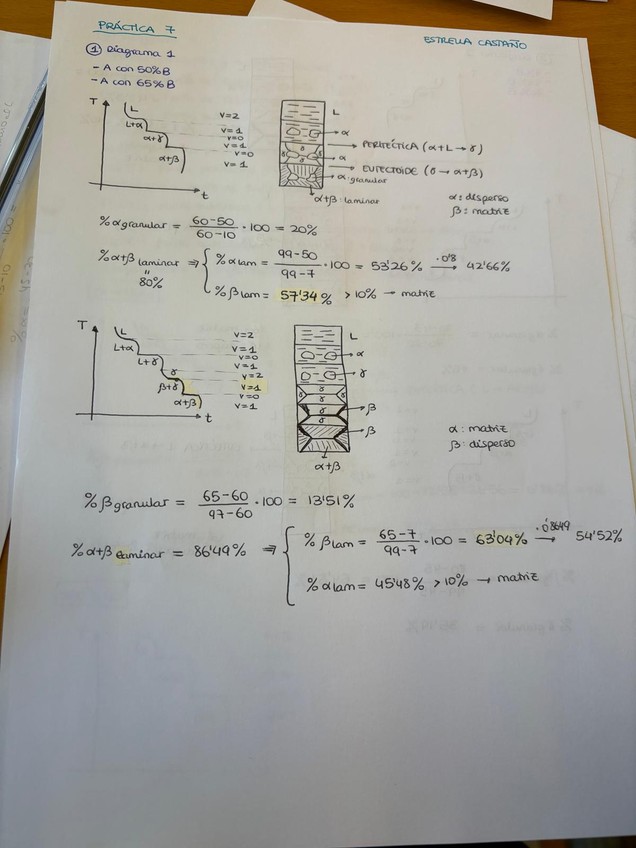 PRÁCTICA 7
ESTRELLA CASTAÑO
① Diagrama 1
- A con 50%B
- A con 65%B
T
L
L+α
α+γ
α+β
t
V=2
V=1
V=0
V=1
V=0
V=1
L
α
γ γ
γ
α
α:granular
α+β:laminar
PERITÉCTICA (α+L → γ)
EUTECTOIDE (γ → α+β)
α: disperso
β: matriz
% α granular = 60-50 / 60-10 · 100 = 20%
% α+β laminar ⇒ { % α lam = 99-50 / 99-7 · 100 = 53'26% → ·0'8 42'66%
"
80%
% β lam = 57'34% > 10% → matriz
T
L
L+α
L+γ
γ
β+γ
α+β
t
V=2
V=1
V=0
V=1
V=2
V=1
V=0
V=1
L
α
γ
γ
γ γ
γ
γ
β
β
α+β
α: matriz
β: disperso
% β granular = 65-60 / 97-60 · 100 = 13'51%
% α+β laminar = 86'49% ⇒ { % β lam = 65-7 / 99-7 · 100 = 63'04% → ·0'8649 54'52%
% α lam = 45'48% > 10% → matriz